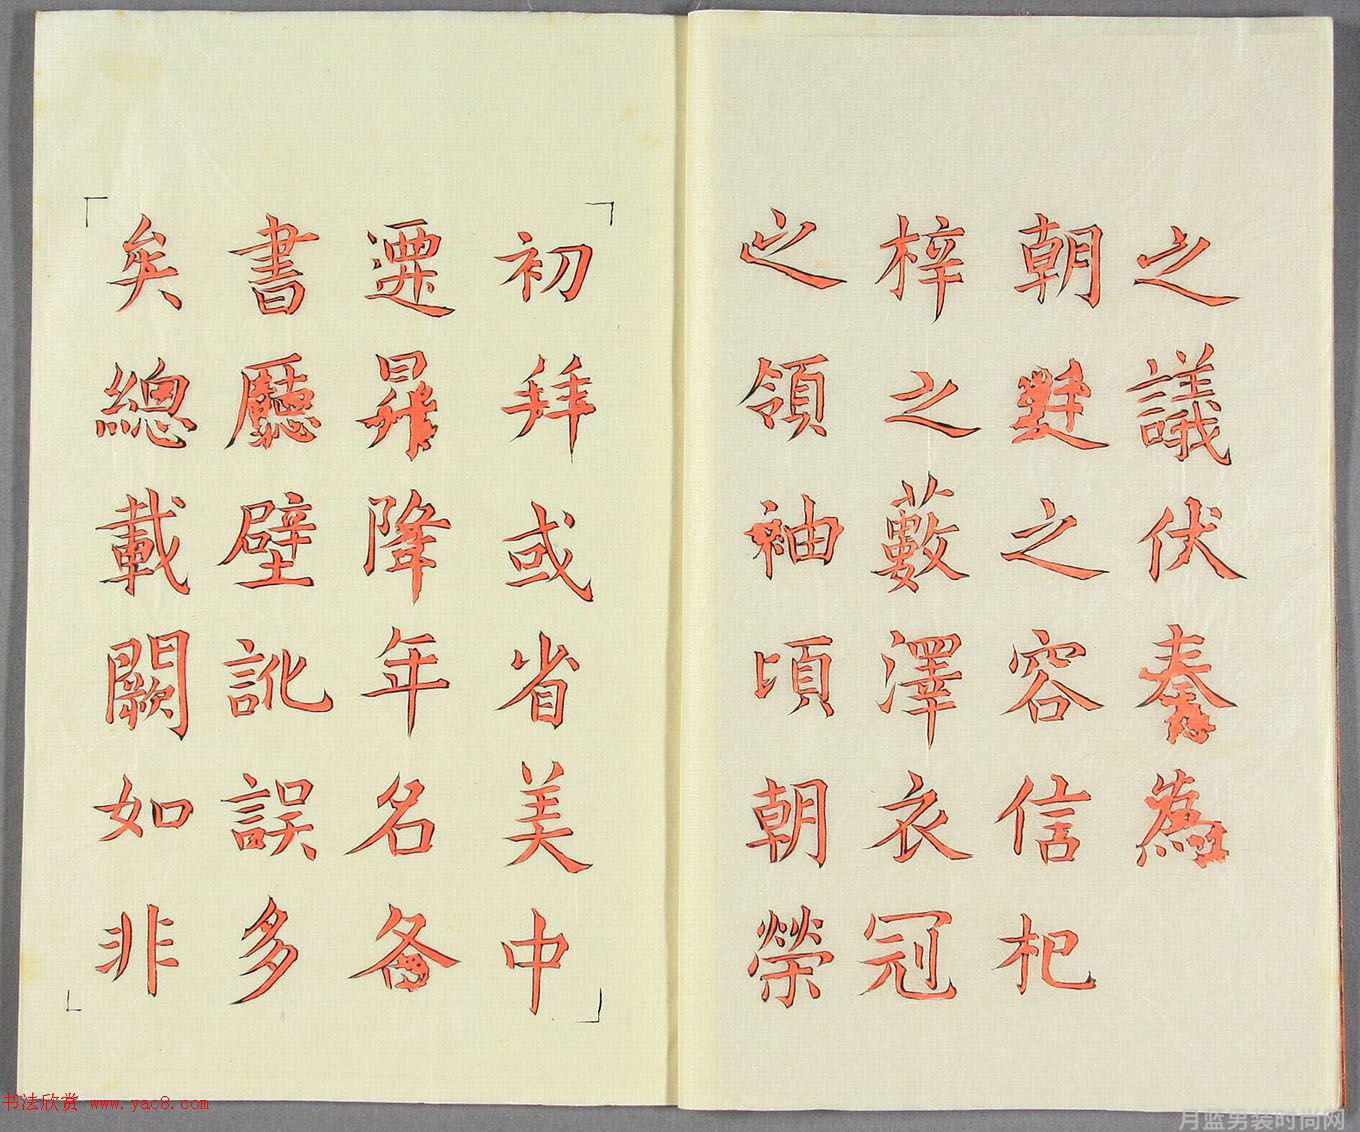 之議伏奏為
朝廷之容信杞
梓之藪澤衣冠
之領袖頃朝榮
初拜或省美中
遷昇降年名各
書廳壁訛誤多
矣總載闕如非
书法欣赏 www.yac8.com
月蓝男装时尚网